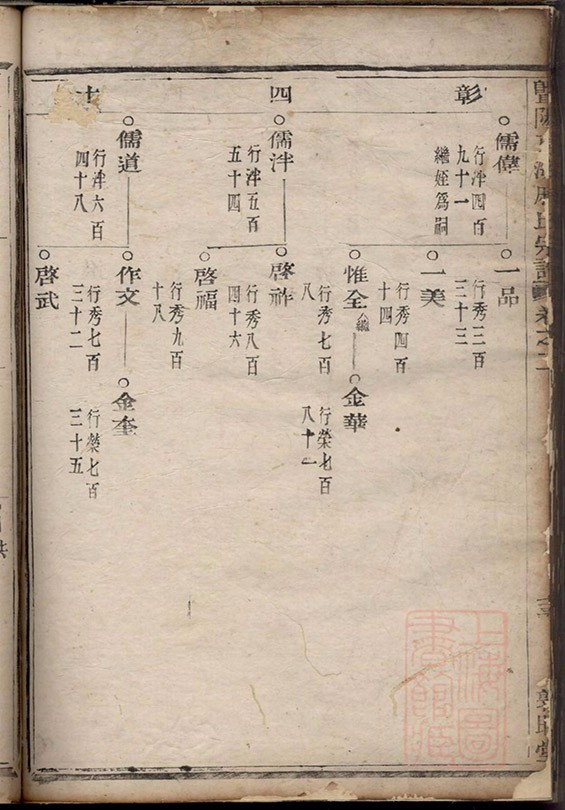 彰
儒偉
行泮四百
九十一
繼姪爲嗣
一品
行秀三百
三十三
一美
行秀四百
十四
惟全
行秀七百
八
金華
行榮七百
八十一
四
儒泮
行泮五百
五十四
啓祚
行秀八百
四十六
啓福
行秀九百
十八
儒道
行泮六百
四十八
作文
行秀七百
三十二
金奎
行榮七百
三十五
啓武